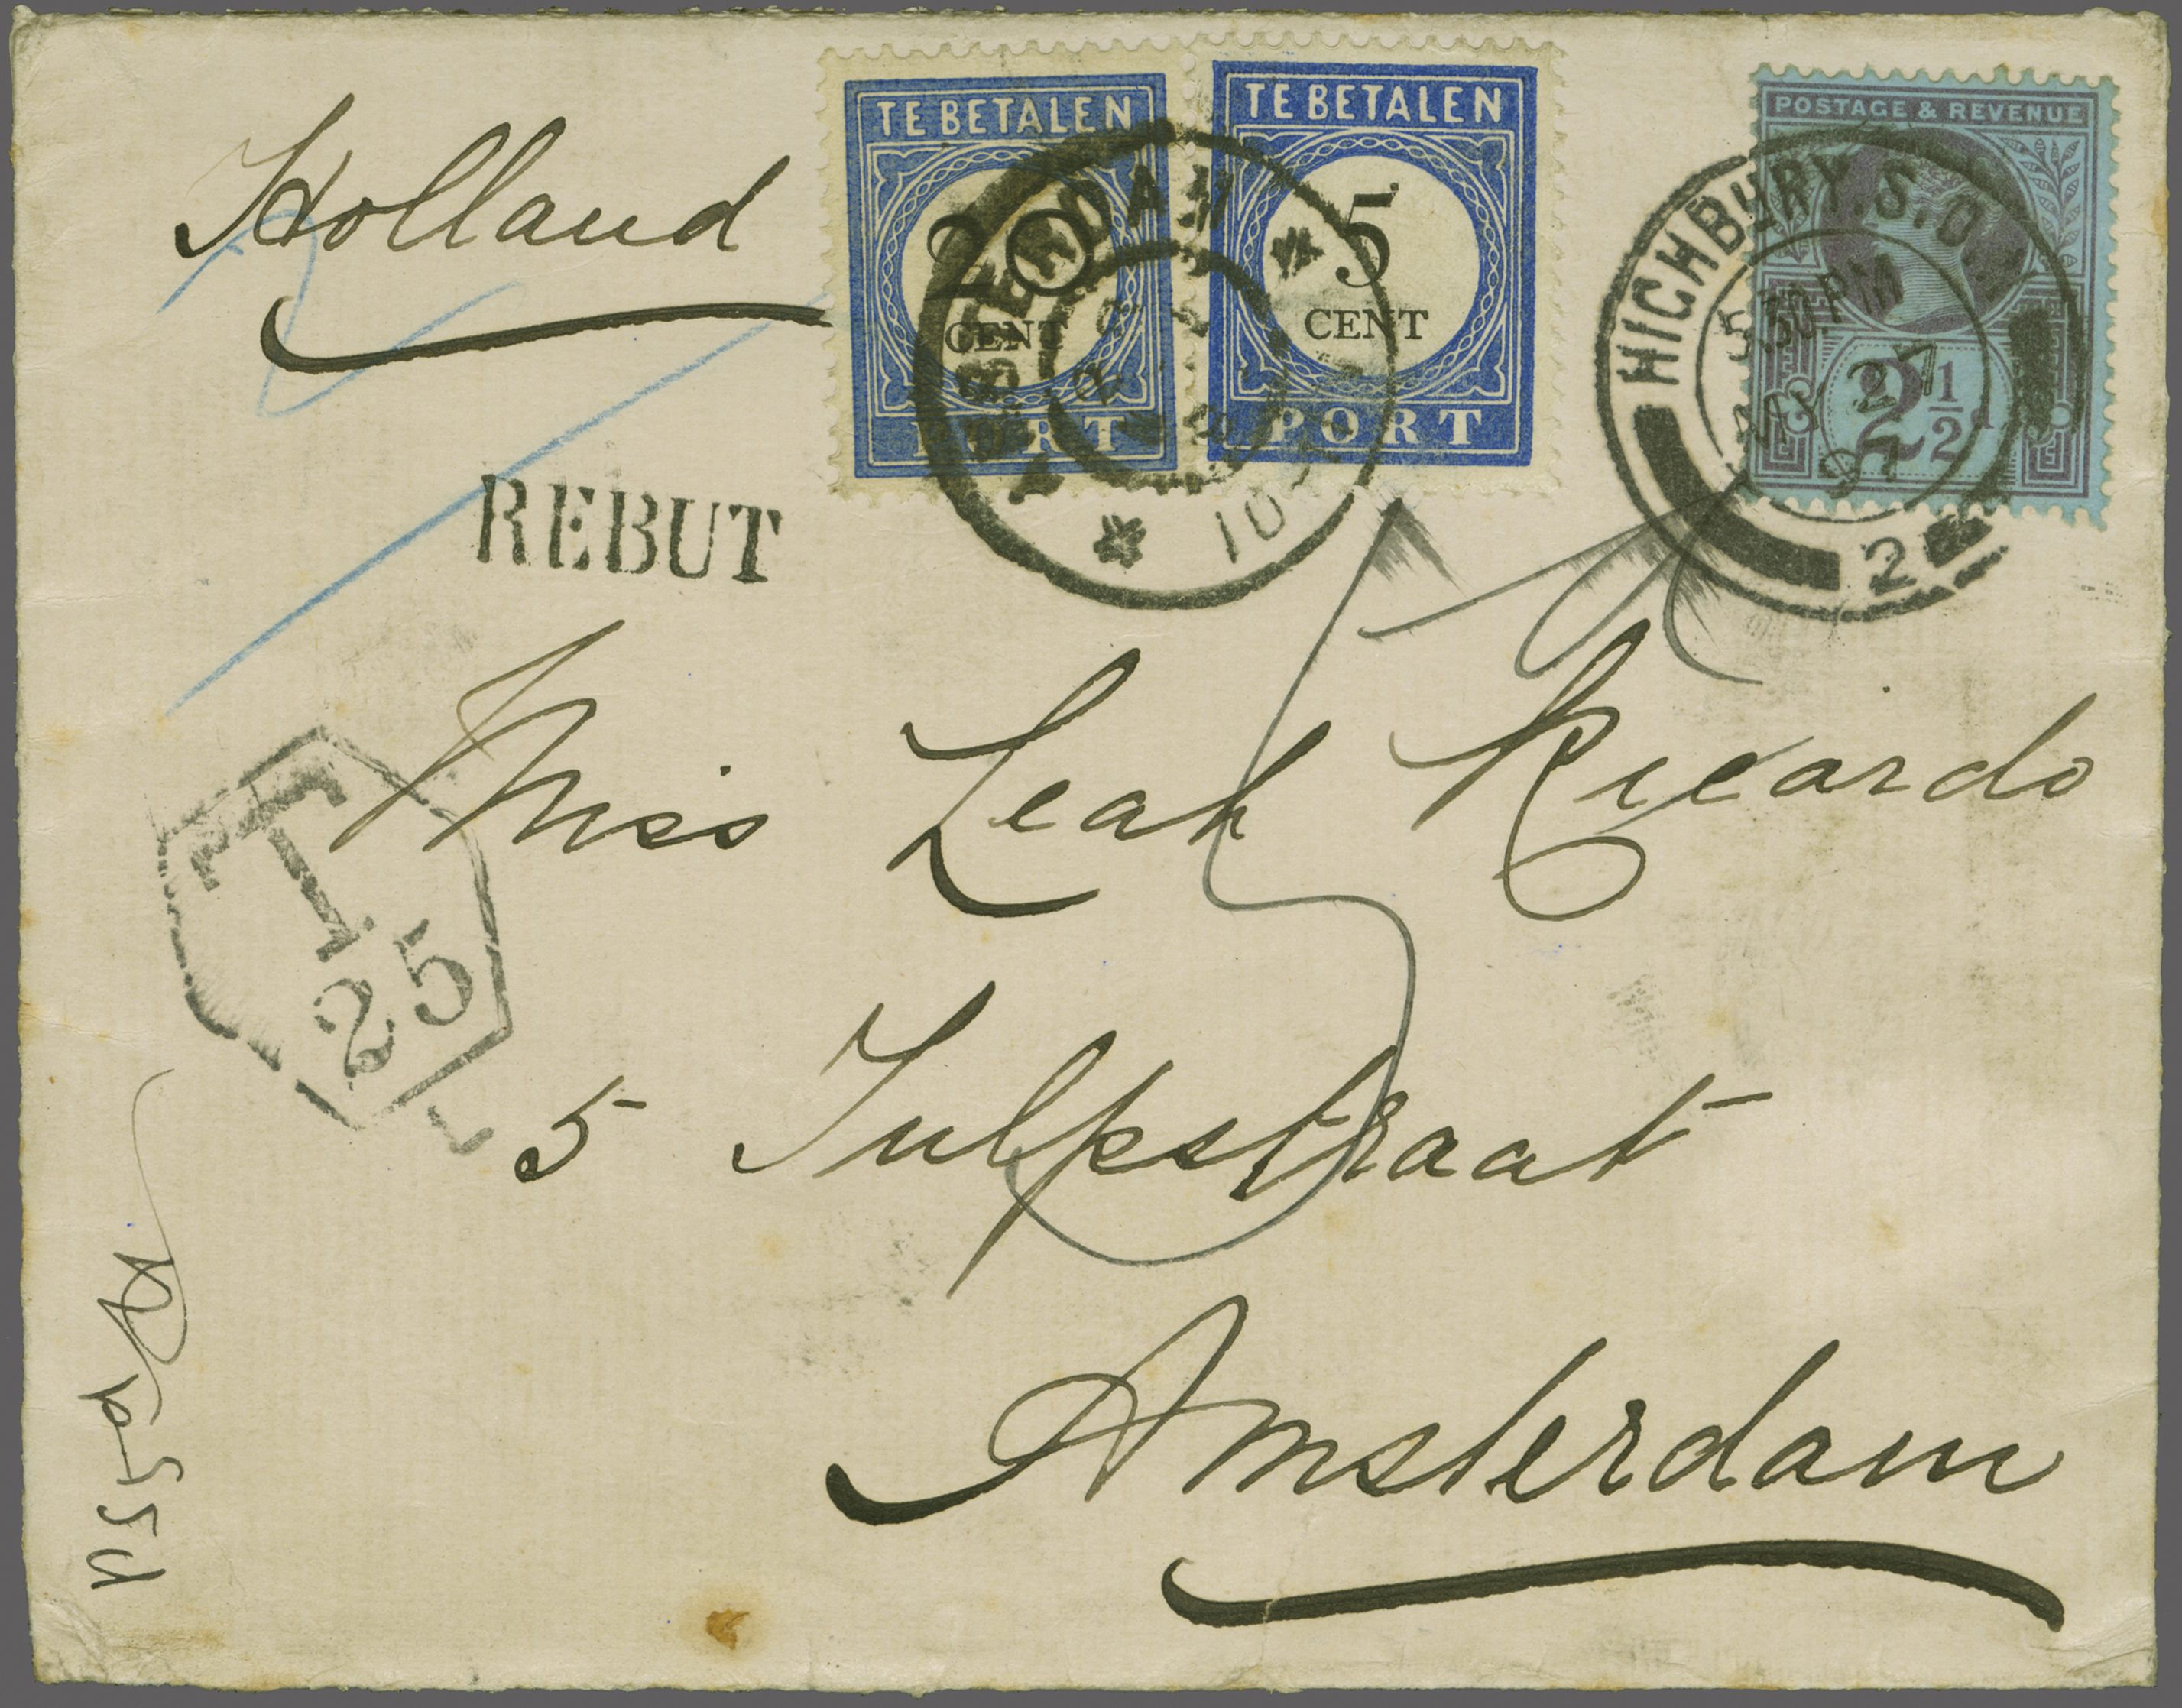 Holland
TE BETALEN
20
CENT
PORT
TE BETALEN
5
CENT
PORT
* 10
POSTAGE & REVENUE
2½d
HIGHBURY.S.O.
.30.PM
27
97
2
REBUT
T
25
L
Miss Leah Ricardo
5 Tulpstraat
Amsterdam